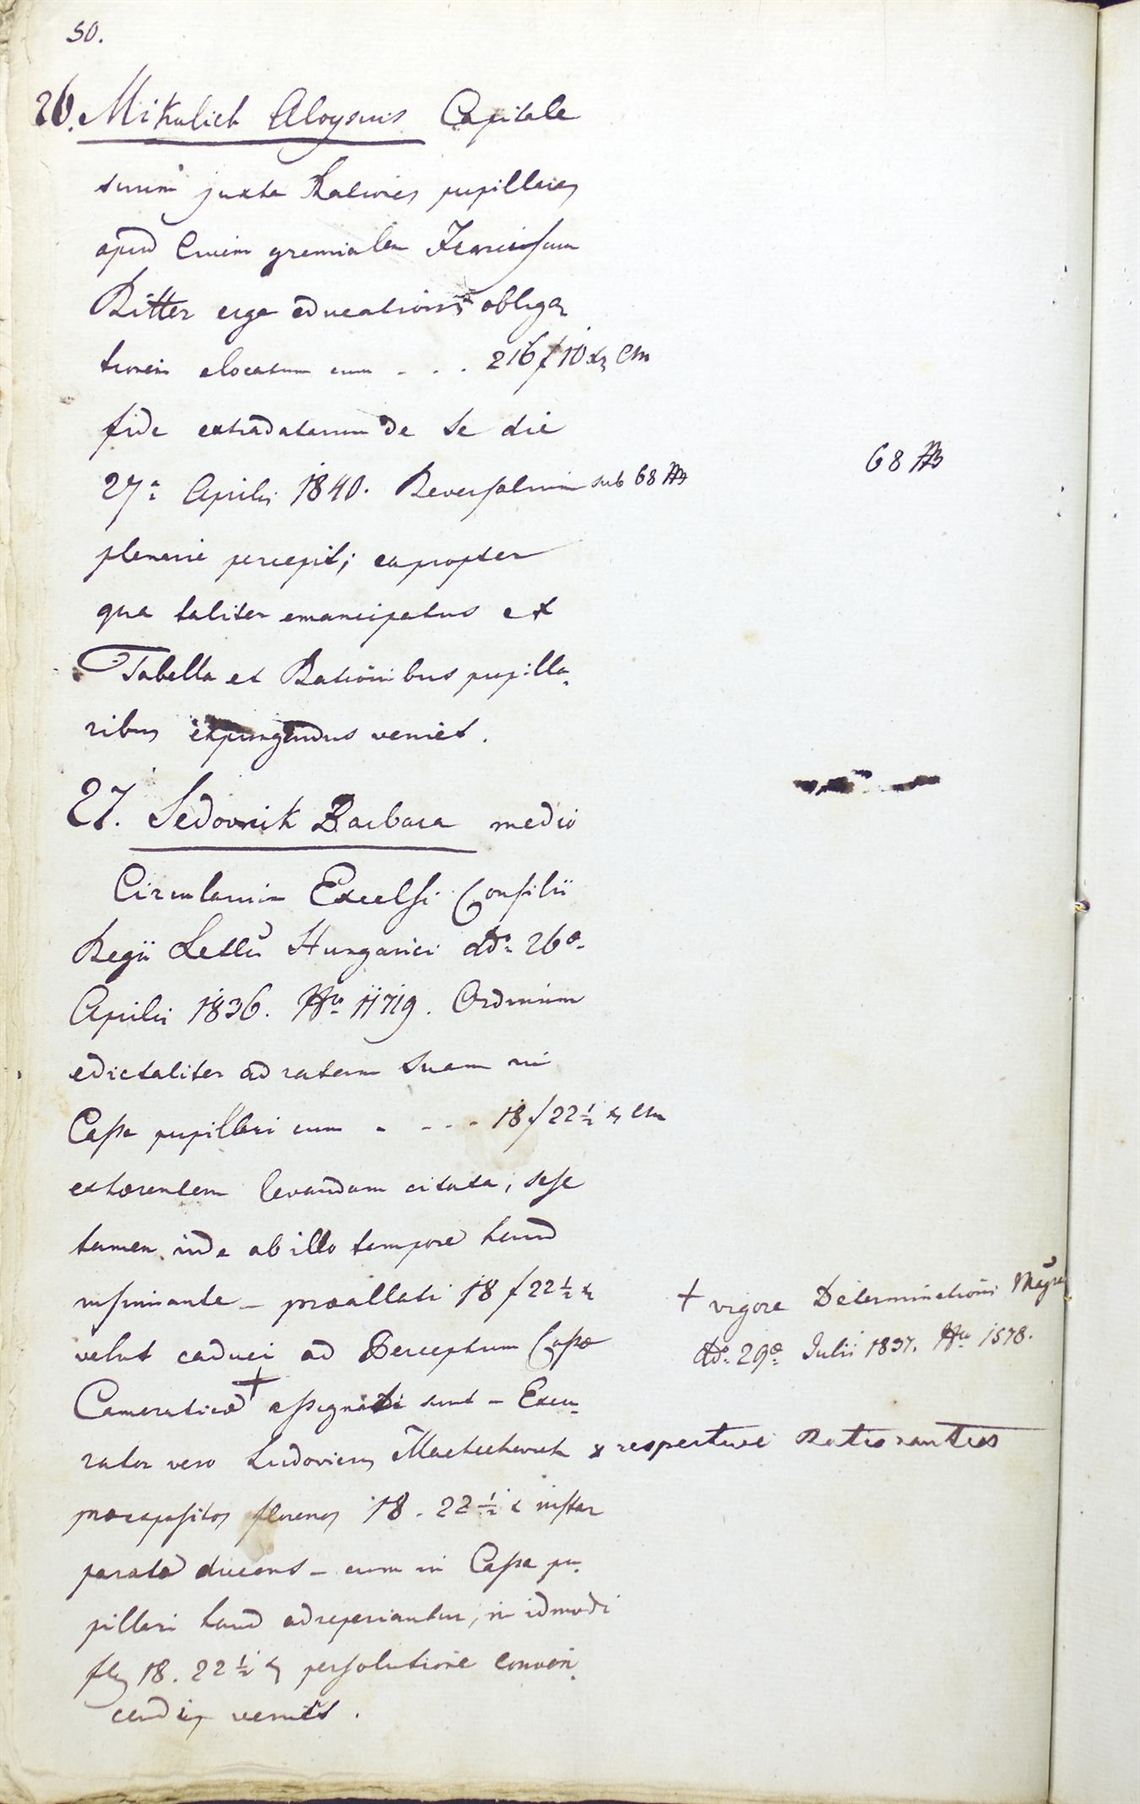 50.
26. Mikulich Aloysius Capitale
suum juxta Rationes pupillares
apud Civem gremialem Franciscum
Ritter erga educationis obliga
tionem elocatum cum - . . 216 f 10 xr Cm
fide extradatarum de se die
27a Aprilis 1840. Reversalium sub 68
68
plenarie percepit; eapropter
qua taliter emancipatus ex
Tabella et Rationibus pupilla-
ribus expungendus veniet.
27. Sedovnik Barbara medio
Circularium Excelsi Consilii
Regii Hungarici ddo 26a
Aprilis 1836. Nro 11719. Ordinum
edictaliter ad ratam suam in
Cassa pupillari cum - - - - 18 f 22 ½ x Cm
exhaerentem levandam citata, sese
tamen inde ab illo tempore haud
insinuante - praeallati 18 f 22 ½ x
velut caduci ad Perceptum Cassae
+ vigore Determinationis
ddo 29a Julii 1837. Nro 1578.
Cameraticae + assignati sunt - Exac-
rator vero Ludovicus x respective Rationantes
praeexpositos florenos 18. 22 ½ x instar
parata ducens - cum in Cassa pu-
pillari haud adreperiantur, in idmodi
fl 18. 22 ½ x persolutione convin-
cendus veniet.